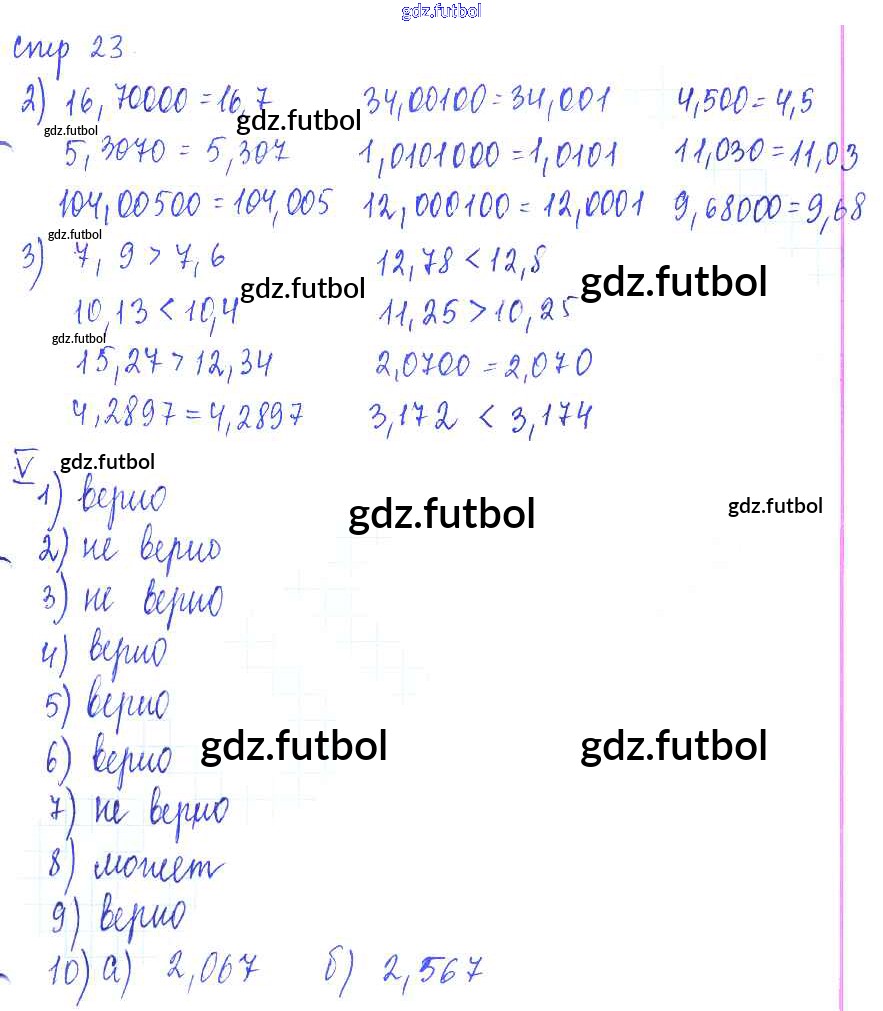 gdz.futbol
стр 23
2) 16,70000 = 16,7 34,00100 = 34,001 4,500 = 4,5
gdz.futbol gdz.futbol
5,3070 = 5,307 1,0101000 = 1,0101 11,030 = 11,03
104,00500 = 104,005 12,000100 = 12,0001 9,68000 = 9,68
gdz.futbol
3) 7,9 > 7,6 12,78 < 12,8
gdz.futbol gdz.futbol
10,13 < 10,4 11,25 > 10,25
gdz.futbol
15,27 > 12,34 2,0700 = 2,070
4,2897 = 4,2897 3,172 < 3,174
V gdz.futbol
1) верно
gdz.futbol gdz.futbol
2) не верно
3) не верно
4) верно
5) верно
6) верно gdz.futbol gdz.futbol
7) не верно
8) может
9) верно
10) а) 2,067 б) 2,567